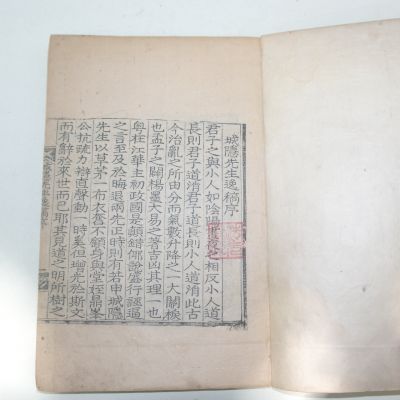 城隱先生逸稿序
君子之與小人如陰陽晝夜之相反小人道
長則君子道消君子道長則小人道消此古
今治亂之所由分而氣數升降之一大關棙
也孟子之闢楊墨大易之著吉凶其理一也
粤在江華主初政國是顚錯邪說盛行誣逼
之言至及於晦退兩先正時則有若申城隱
先生以草茅一布衣奮不顧身與堂姪鼎峯
公抗疏力辯直聲動一時奚但光於斯文
而有辭於來世而已耶其見道之明所樹之